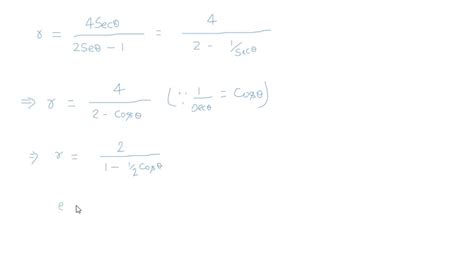 r = 4Secθ / 2Seθ - 1 = 4 / 2 - 1/Sicθ
⇒ r = 4 / 2 - Cosθ (∵ 1/secθ = Cosθ)
⇒ r = 2 / 1 - 1/2 Cosθ
e